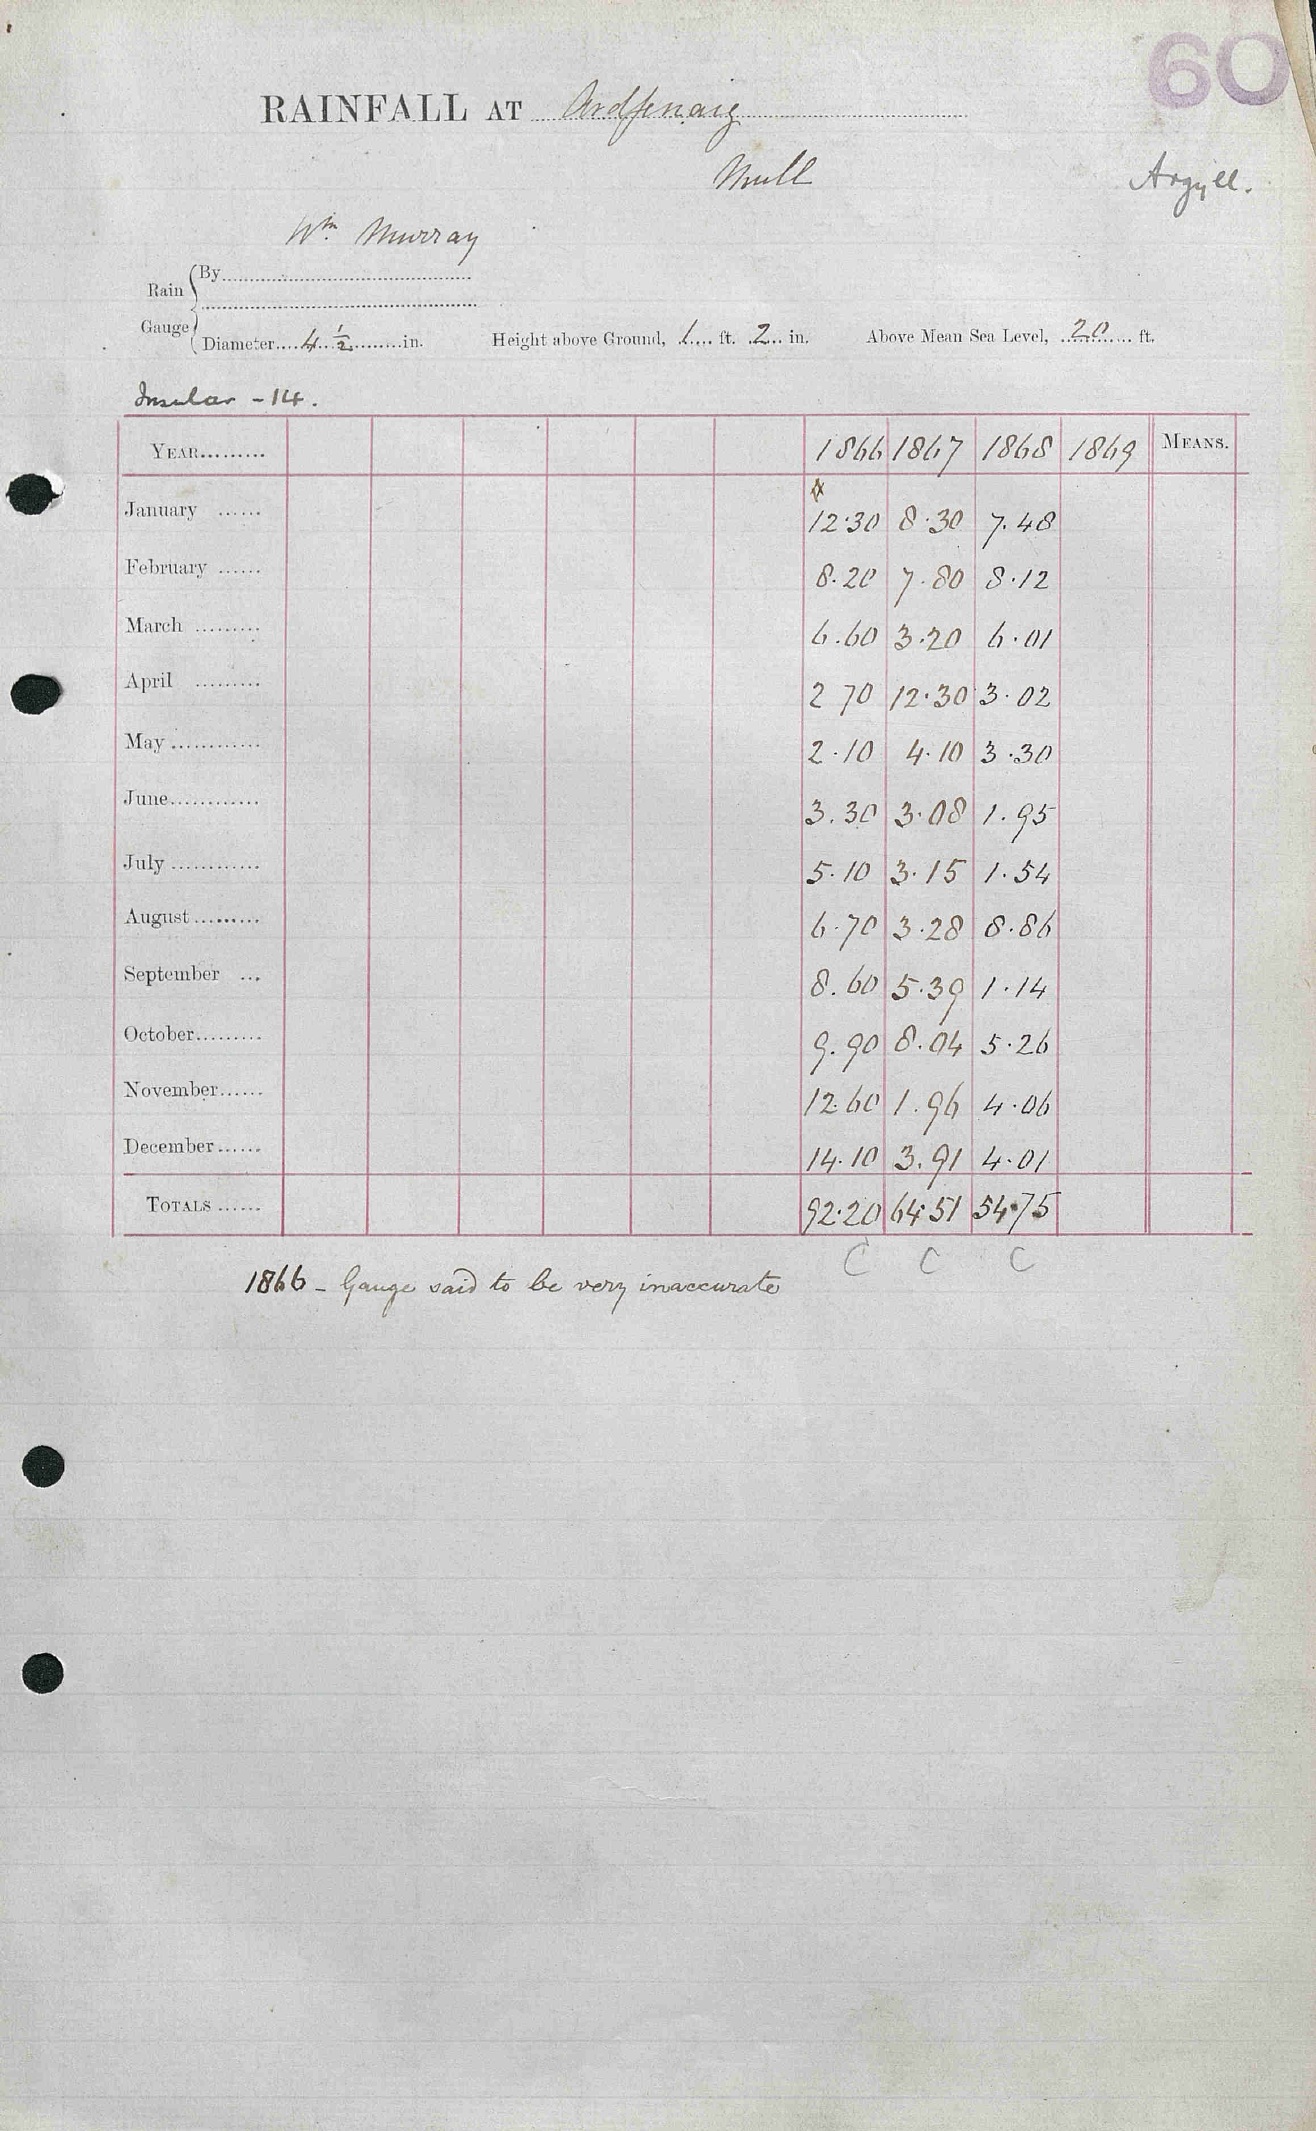 60
RAINFALL AT Ardfenaig
Mull
Argyll.
Wm Murray
Rain Gauge { By
Diameter 4 1/2 in. Height above Ground, 1 ft. 2 in. Above Mean Sea Level, 20 ft.
Insular - 14.
YEAR 1866 1867 1868 1869 MEANS.
January 12.30 8.30 7.48
February 8.20 7.80 8.12
March 6.60 3.20 6.01
April 2 70 12.30 3.02
May 2.10 4.10 3.30
June 3.30 3.08 1.95
July 5.10 3.15 1.54
August 6.70 3.28 8.86
September 8.60 5.39 1.14
October 9.90 8.04 5.26
November 12.60 1.96 4.06
December 14.10 3.91 4.01
TOTALS 92.20 64.51 54.75
C C C
1866 - Gauge said to be very inaccurate